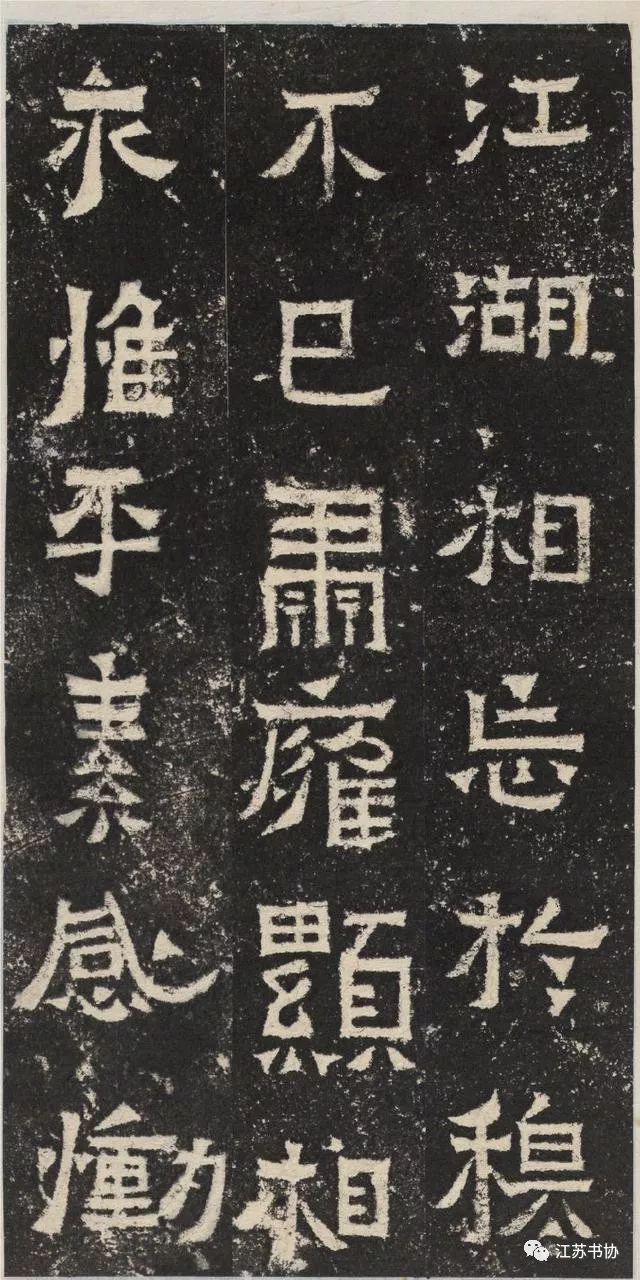 江湖相忘於穆
不已肅雍顯相
永惟平素感慟
江苏书协